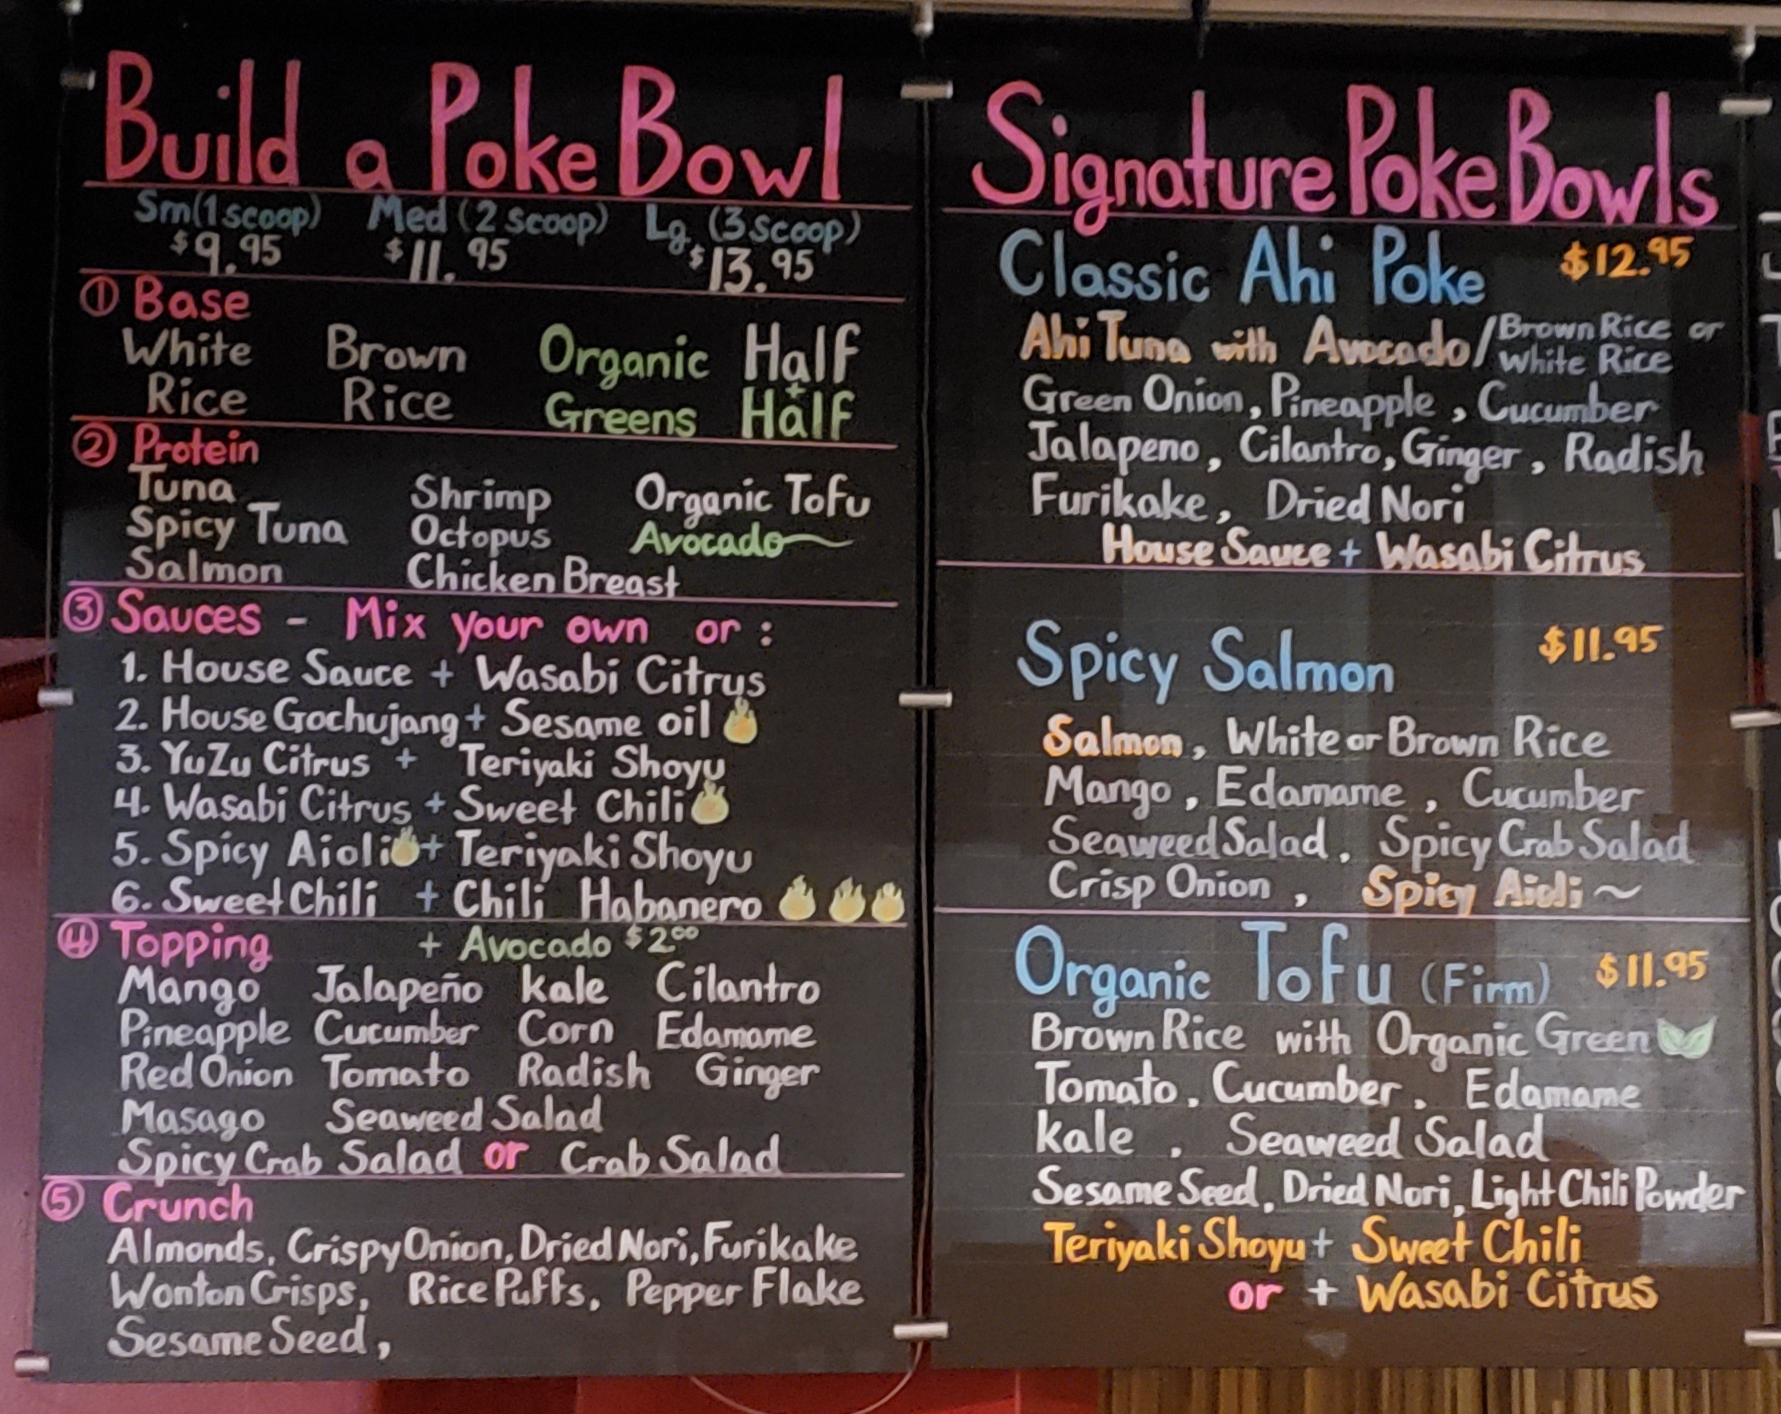 Build a Poke Bowl
Sm(1 scoop) Med (2 scoop) Lg. (3 scoop)
$9.95 $11.95 $13.95
① Base
White Brown Organic Half
Rice Rice Greens + Half
② Protein
Tuna Shrimp Organic Tofu
Spicy Tuna Octopus Avocado
Salmon Chicken Breast
③ Sauces - Mix your own or :
1. House Sauce + Wasabi Citrus
2. House Gochujang + Sesame oil
3. YuZu Citrus + Teriyaki Shoyu
4. Wasabi Citrus + Sweet Chili
5. Spicy Aioli + Teriyaki Shoyu
6. Sweet Chili + Chili Habanero
④ Topping + Avocado $2.00
Mango Jalapeño Kale Cilantro
Pineapple Cucumber Corn Edamame
Red Onion Tomato Radish Ginger
Masago Seaweed Salad
Spicy Crab Salad or Crab Salad
⑤ Crunch
Almonds, Crispy Onion, Dried Nori, Furikake
Wonton Crisps, Rice Puffs, Pepper Flake
Sesame Seed,
Signature Poke Bowls
Classic Ahi Poke $12.95
Ahi Tuna with Avocado / Brown Rice or
White Rice
Green Onion, Pineapple, Cucumber
Jalapeno, Cilantro, Ginger, Radish
Furikake, Dried Nori
House Sauce + Wasabi Citrus
Spicy Salmon $11.95
Salmon, White or Brown Rice
Mango, Edamame, Cucumber
Seaweed Salad, Spicy Crab Salad
Crisp Onion, Spicy Aioli ~
Organic Tofu (Firm) $11.95
Brown Rice with Organic Green
Tomato, Cucumber, Edamame
Kale, Seaweed Salad
Sesame Seed, Dried Nori, Light Chili Powder
Teriyaki Shoyu + Sweet Chili
or + Wasabi Citrus